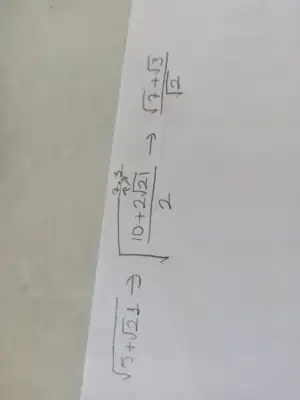 √(5+√21) → √((10+2√21)/2) → (√7+√3)/√2
7 3